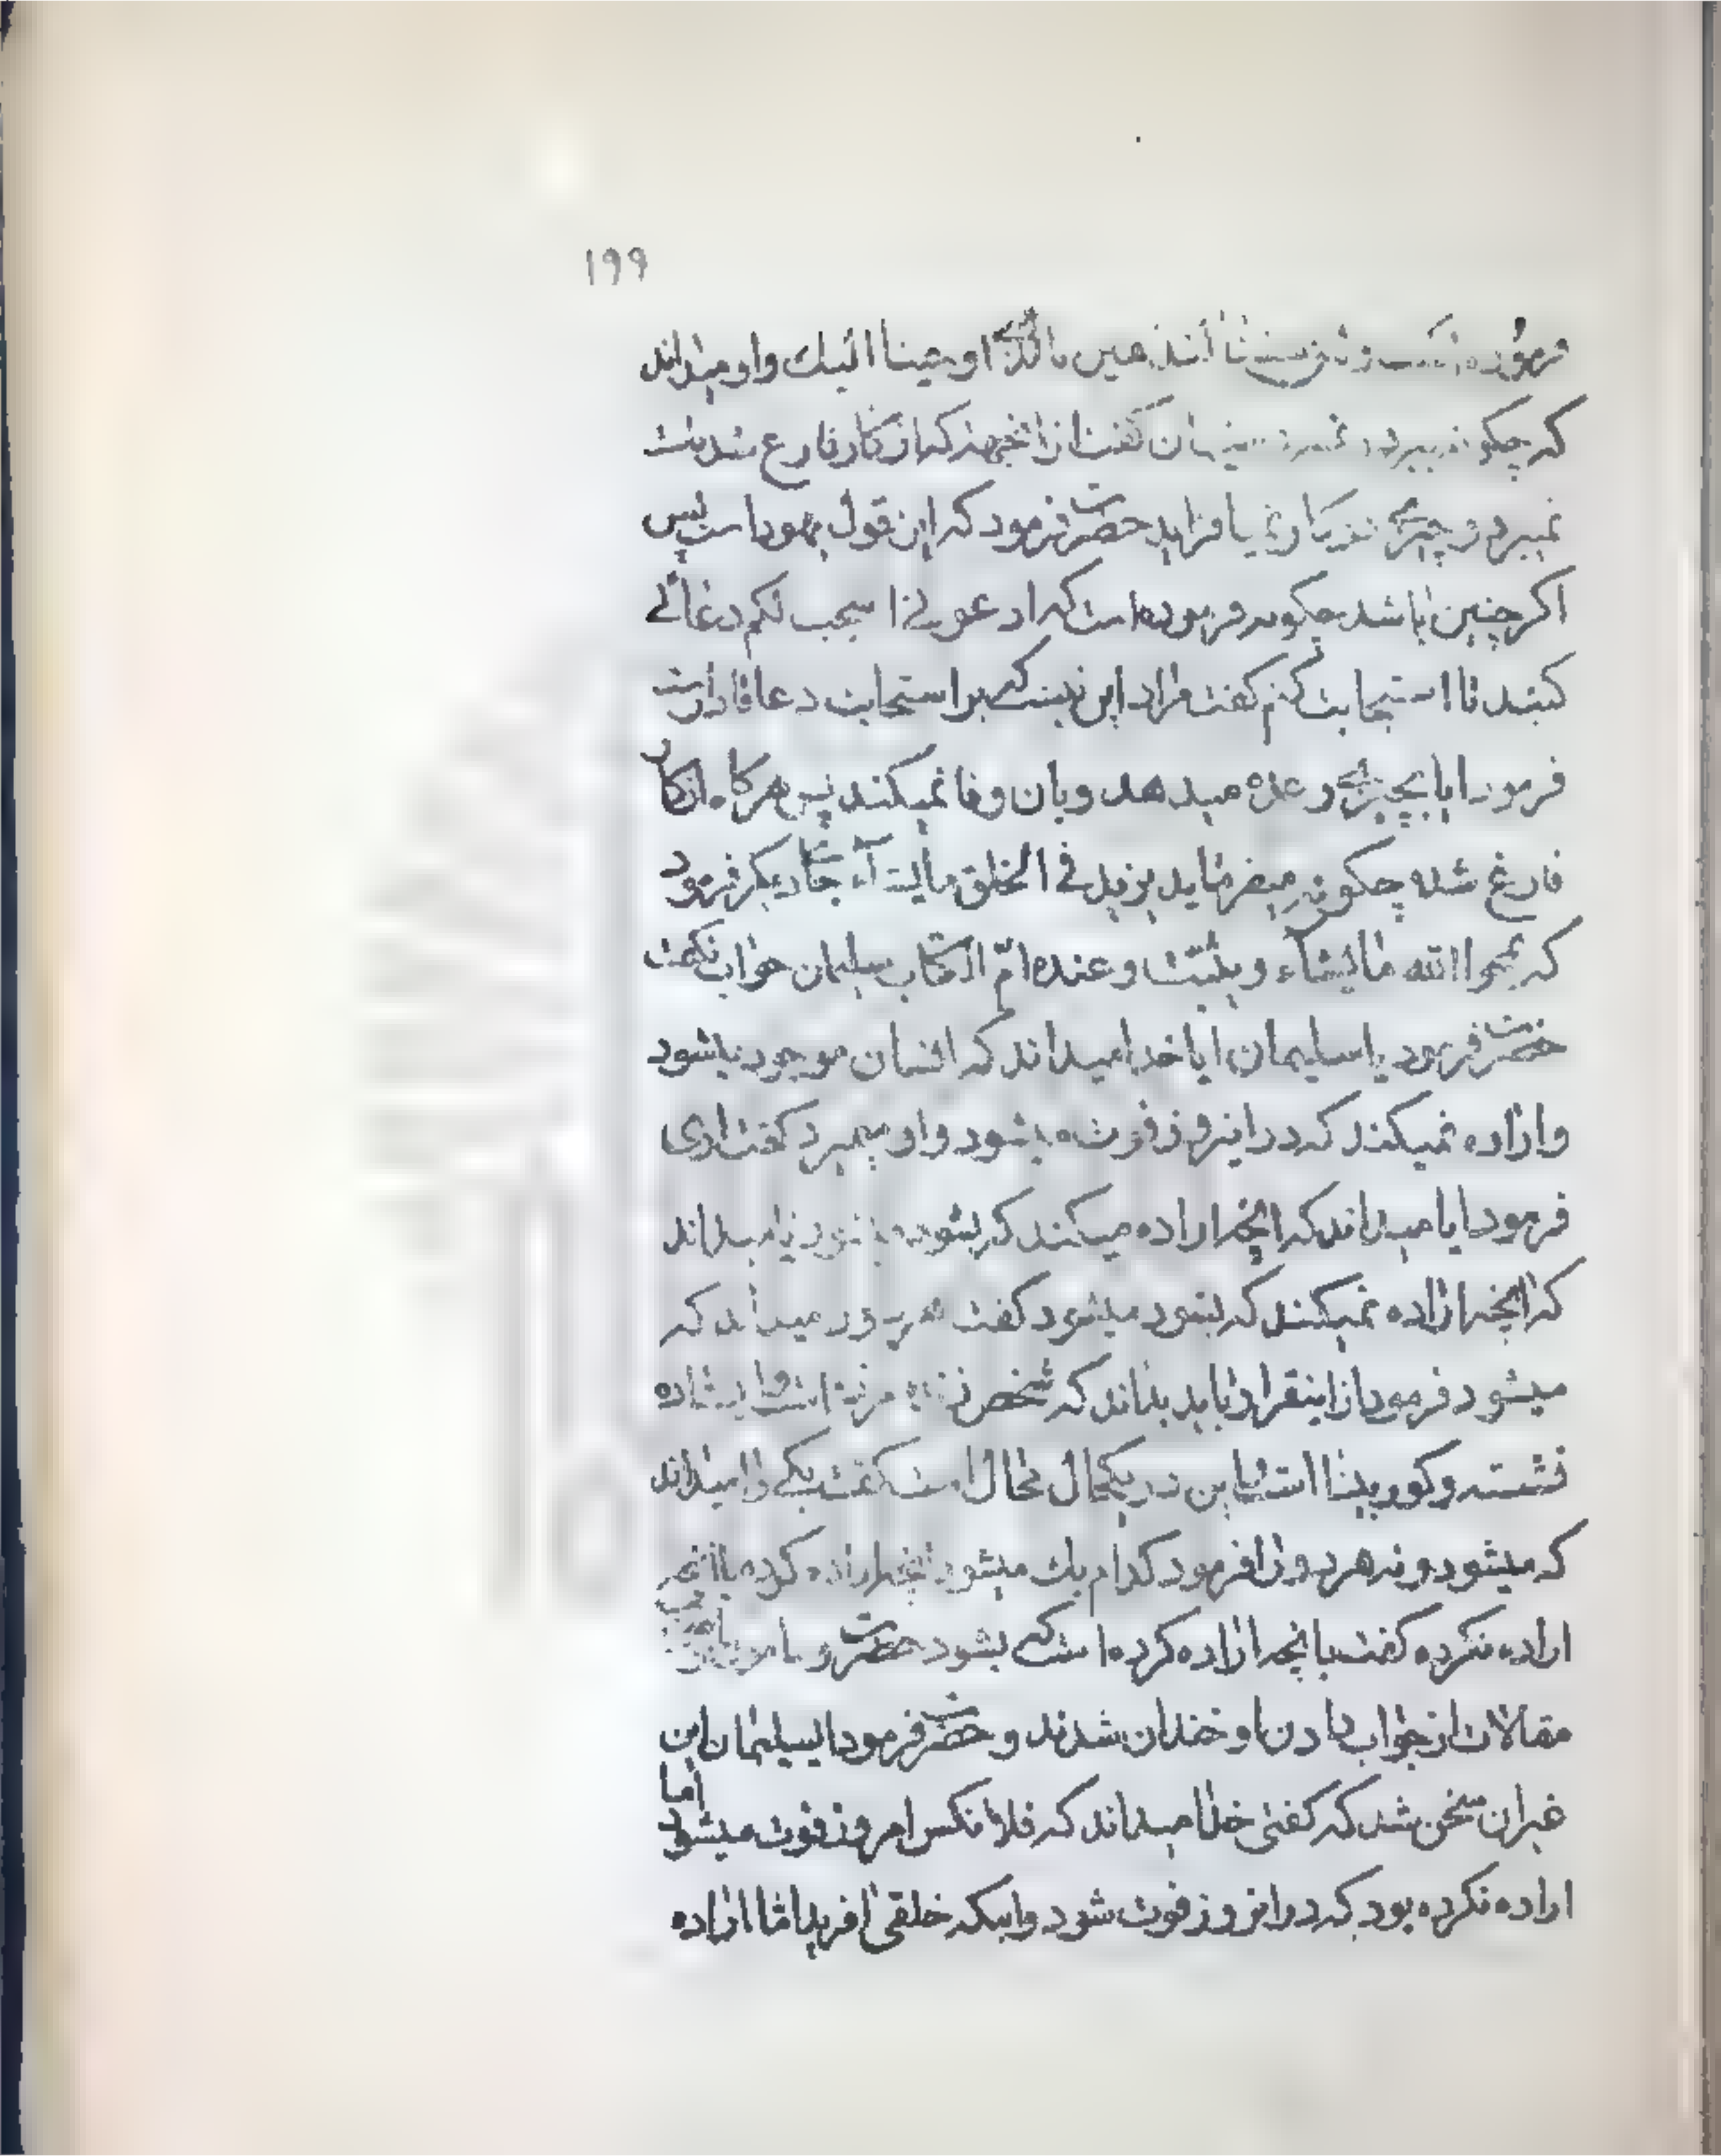 ۱۹۹
فرموده است ولئن شئنا لنذهبن بالذی اوحینا الیك واو میداند
که چکونه ببرد کفت ازانجهة که از کار فارغ شده است
نمیبرد و چیزی نمیافزاید حضرت فرمود که این قول یهود است پس
اکر چنین باشد چکونه فرموده است که ادعونی استجب لکم دعائی
کنید تا استجابت کنم کفت مراد این نیست که بر استجابت دعا قادر است
فرمود ایا بچیزی وعده میدهد وبان وفا نمیکند پس هرکاه از کار
فارغ شده چکونه میفرماید یزید فی الخلق مایشآء جای دیکر فرمود
که یمحوا الله مایشاء ویثبت وعنده امّ الکتاب سلیمان جواب نکفت
حضرت فرمود یاسلیمان ایا خدا میداند که انسان موجود میشود
واراده نمیکند که در اینروز فوت میشود واو میمیرد کفت اری
فرمود ایا میداند که انچه اراده میکند که بشود میشود یا میداند
که انچه اراده نمیکند که بشود میشود کفت هر دو را میداند که
میشود فرمود ازاینقرار باید بداند که شخص زنده مرده است وایستاده
نشسته وکور بینا است واین در یکحال محال است کفت یکی را میداند
که میشود ونه هر دو را فرمود کدام یك میشود انچه اراده کرده یا انچه
اراده نکرده کفت بانچه اراده کرده است که بشود حضرت و مامون
مقالات از جواب دادن او خندان شدند و حضرت فرمود ایسلیمان این
غیران سخن شد که کفتی خدا میداند که فلانکس امروز فوت میشود اما
اراده نکرده بود که درانروز فوت شود واینکه خلقی افرید اما اراده